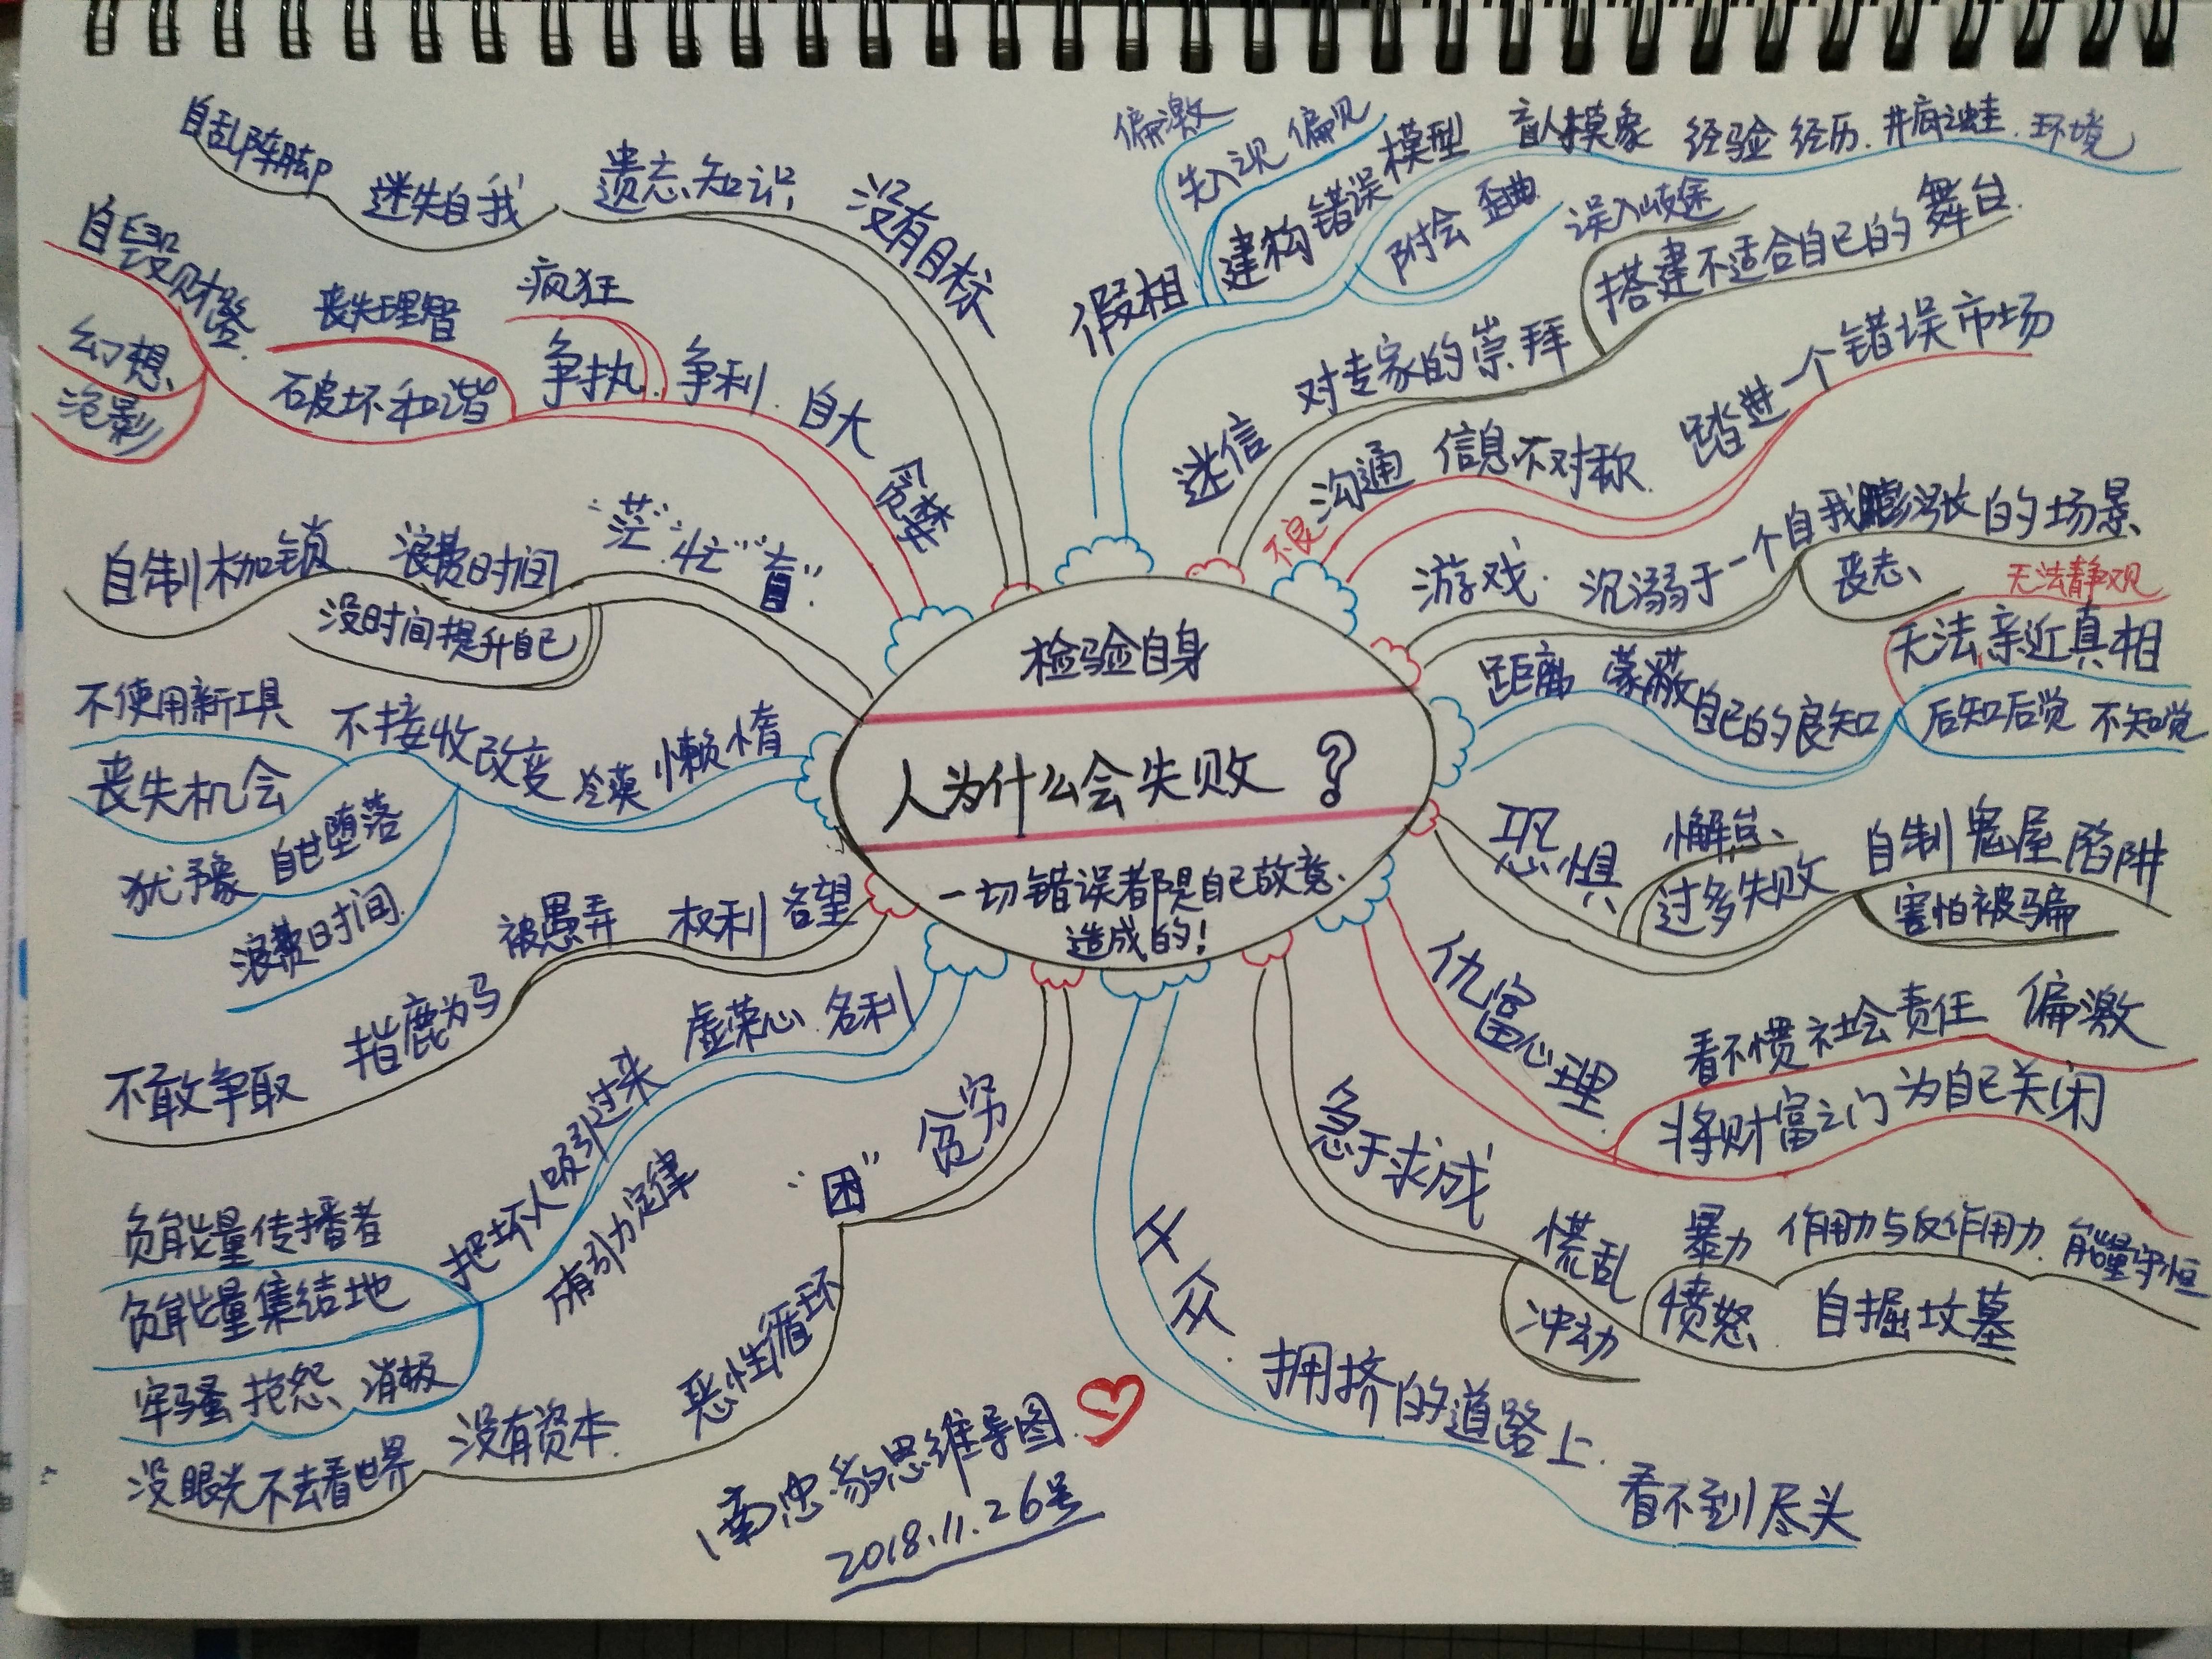 检验自身
人为什么会失败？
一切错误都是自己故意、
造成的！
假相
偏激
先入观 偏见
建构错误模型
盲人模象 经验 经历. 井底之蛙. 环境
附会 歪曲
迷信
对专家的崇拜
误入岐途
搭建不适合自己的舞台.
不良
沟通
信息不对称.
踏进一个错误市场
游戏.
沉溺于一个自我膨涨的场景
丧志、
距离
蒙蔽自己的良知
无法静观
无法亲近真相
后知后觉 不知觉
恐惧
懈怠、
过多失败
自制鬼屋陷阱
害怕被骗
仇富心理.
看不惯社会责任 偏激
将财富之门为自己关闭
急于求成
慌乱
冲动
暴力 作用力与反作用力. 能量守恒
愤怒 自掘坟墓
从众.
拥挤的道路上.
看不到尽头
贫穷
“困”
恶性循环
没有资本.
没眼光不去看世界
虚荣心. 名利
把坏人吸引过来
吸引力定律
负能量传播者
负能量集结地
牢骚 抱怨、消极
权利 名望
被愚弄
指鹿为马
不敢争取
冷漠 懒惰
不接收改变
不使用新工具
丧失机会
犹予豫 自甘堕落
浪费时间.
“茫”“忙”“盲”
浪费时间
没时间提升自己
自制枷锁
贪婪
自大
争利.
争执.
疯狂
丧失理智
破坏和谐
幻想、
泡影
没有目标
遗忘知识,
迷失自我
自乱阵脚
思维导图
2018.11.26号